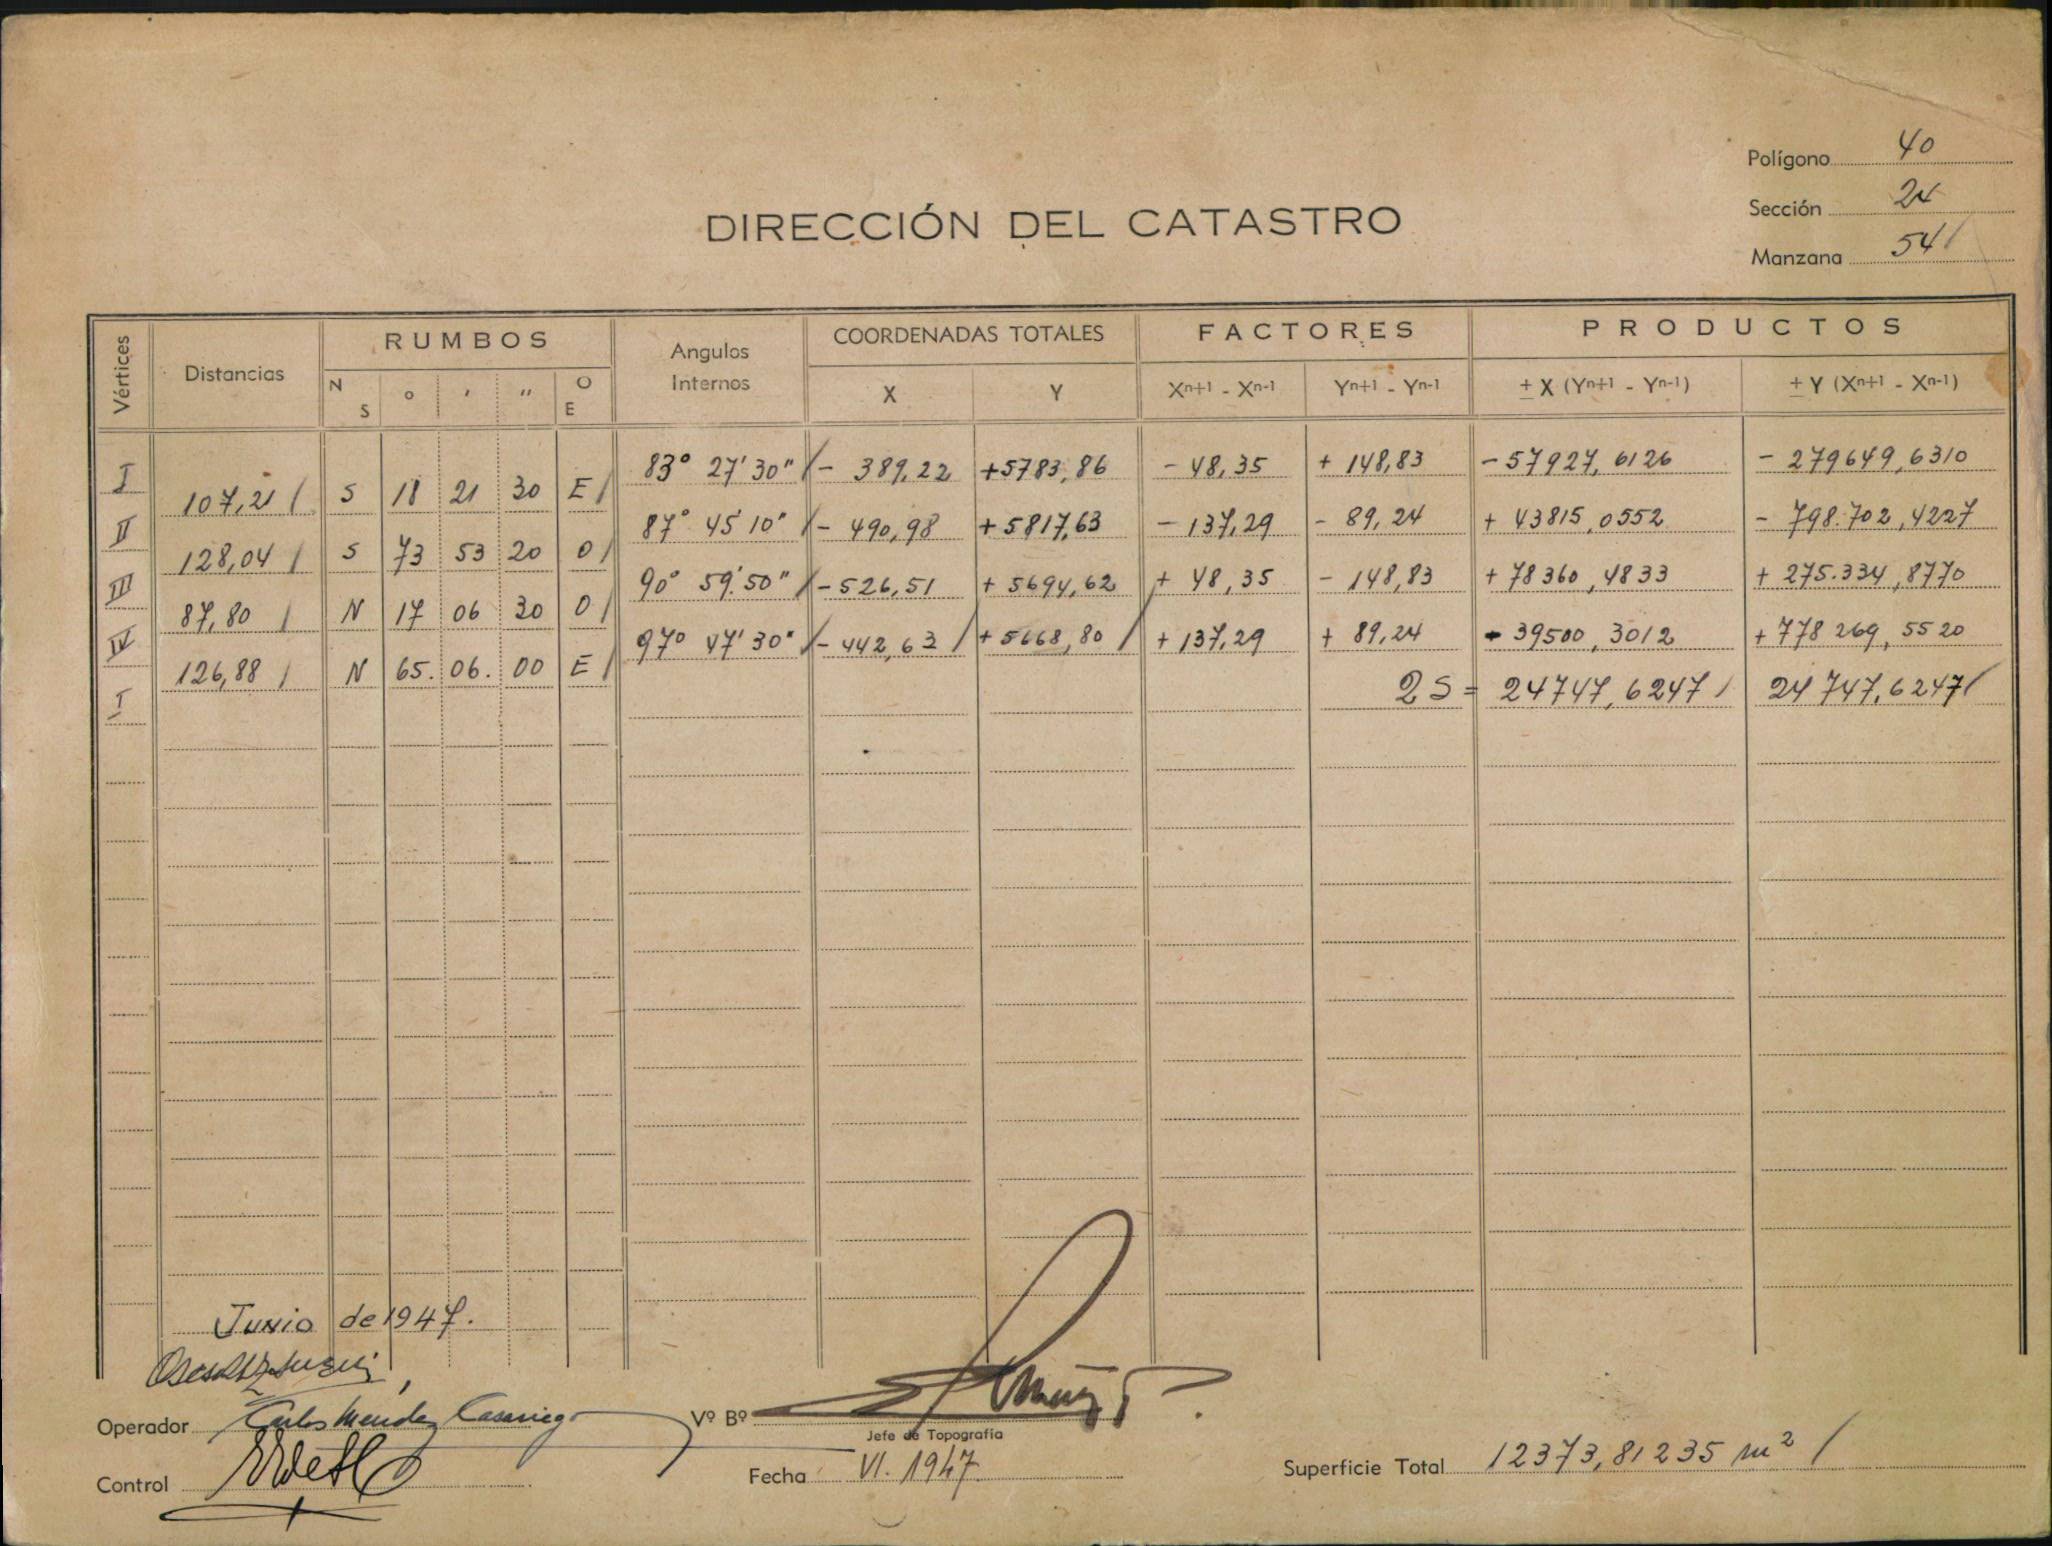 Polígono 40
Sección 24
DIRECCIÓN DEL CATASTRO
Manzana 54 /
Vértices Distancias RUMBOS Angulos Internos COORDENADAS TOTALES FACTORES PRODUCTOS
N S ° ' " O E X Y Xn+1 - Xn-1 Yn+1 - Yn-1 ± X (Yn+1 - Yn-1) ± Y (Xn+1 - Xn-1)
I 83° 27' 30" / - 389,22 +5783,86 - 48,35 + 148,83 - 57927,6126 - 279649,6310
107,21 / S 18 21 30 E /
II 87° 45' 10" / - 490,98 + 5817,63 - 137,29 - 89,24 + 43815,0552 - 798.702,4227
128,04 / S 73 53 20 O /
III 90° 59' 50" / - 526,51 + 5694,62 + 48,35 - 148,83 + 78360,4833 + 275.334,8770
87,80 / N 17 06 30 O /
IV 97° 47' 30" / - 442,63 / + 5668,80 / + 137,29 + 89,24 - 39500,3012 + 778269,5520
126,88 / N 65. 06. 00 E /
I 2S = 24747,6247 / 24747,6247 /
Junio de 1947.
Operador Carlos Mendez Casariego Vº Bº
Jefe de Topografía
Control Fecha VI. 1947. Superficie Total 12373,81235 m² /